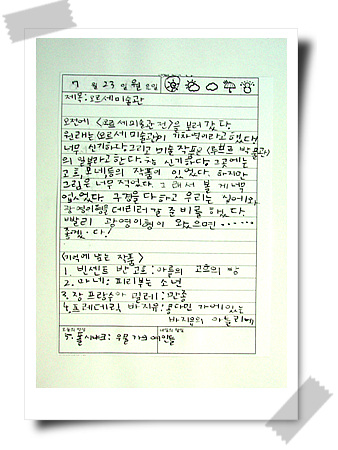 7 월 23 일 월 요일
제목: 오르세미술관
오전에 <오르세미술관전>을 보러 갔다
원래는 (오르세 미술관)이 기차역이라고 했다
너무 신기하다 그리고 미술 작품은 (루브르 박물관)
의 일부라고 한다 참 신기하다 그곳에는
고흐, 모네등의 작품이 있었다. 하지만
그림은 너무 적었다. 그래서 볼 게 너무
없었다 구경을 다하고 우리는 집에와
광영이형을 데리러갈 준비를 했다
빨리 광영이형이 왔으면……
좋겠다!
<기억에 남는 작품>
1. 빈센트 반 고흐: 아를의 고흐의 방
2. 마네: 피리부는 소년
3. 장 프랑수아 밀레: 만종
4. 프레데릭 바지유: 콩다민 가에 있는
바지유의 아틀리에
오늘의 반성
5. 폴 시냐크: 우물가의 여인들